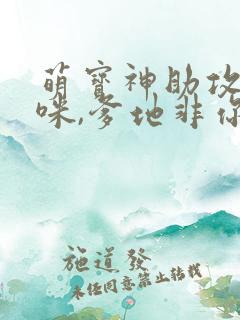 萌宝神助攻
咪,爹地非你
施道发
未经同意禁止转载